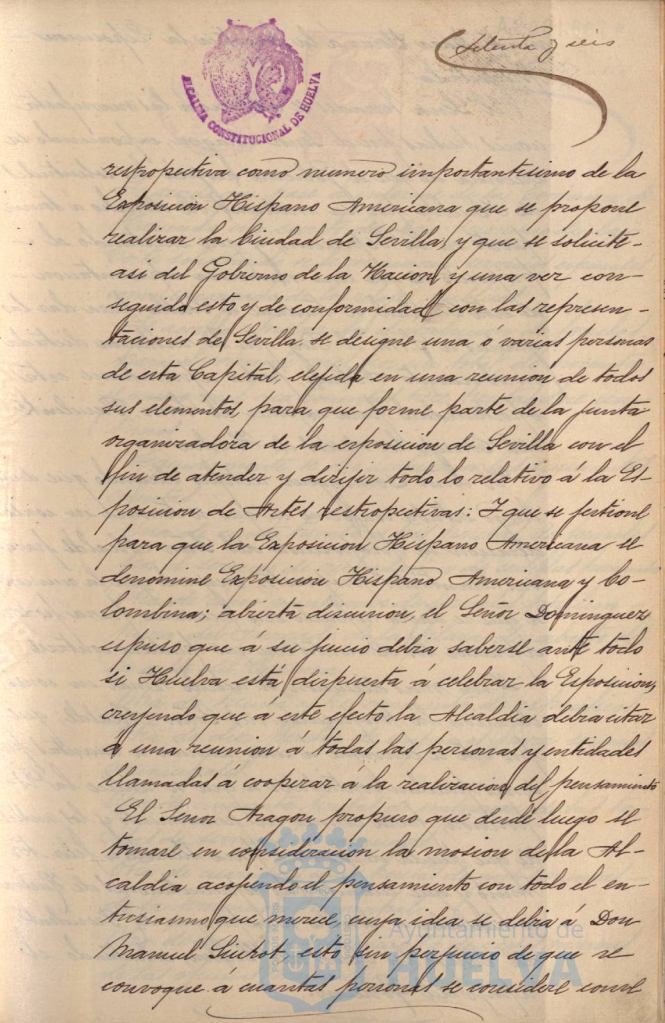 Setenta y seis
ALCALDIA CONSTITUCIONAL DE HUELVA
restropectiva como numero importantisimo de la
Exposición Hispano Americana que se propone
realizar la Ciudad de Sevilla, y que se solicite
asi del Gobierno de la Nacion, y una vez con-
seguido esto y de conformidad con las represen-
taciones de Sevilla, se designe una ó varias personas
de esta Capital, elejida en una reunion de todos
sus elementos, para que forme parte de la junta
organizadora de la esposicion de Sevilla con el
fin de atender y dirijir todo lo relativo á la Es-
posicion de Artes restropectivas: I que se jestione
para que la Exposicion Hispano Americana se
denomine Exposicion Hispano Americana y Co-
lombina; abierta discusion, el Señor Dominguez
espuso que á su juicio debia saberse ante todo
si Huelva está dispuesta á celebrar la Esposicion,
creyendo que á este efecto la Alcaldia debia citar
á una reunion á todas las personas y entidades
llamadas á cooperar á la realizacion del pensamiento
El Señor Aragon propuso que desde luego se
tomase en consideracion la mosion de la Al-
caldia acojiendo el pensamiento con todo el en-
tusiasmo que merece, cuya idea se debia á Don
Manuel Siurot, esto sin perjuicio de que se
convoque á cuantas personas se considere conve
Ayuntamiento de
HUELVA